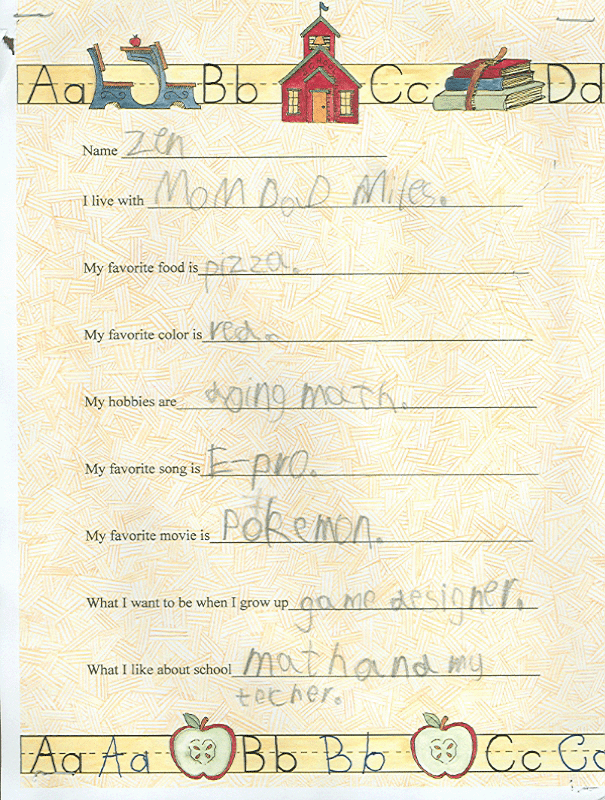 Aa Bb Cc Dd
Name Zen
I live with Mom DaD Miles.
My favorite food is pizza.
My favorite color is red.
My hobbies are doing math.
My favorite song is E-pro.
My favorite movie is Pokemon.
What I want to be when I grow up game designer.
What I like about school math and my
techer.
Aa Aa Bb Bb Cc Cc